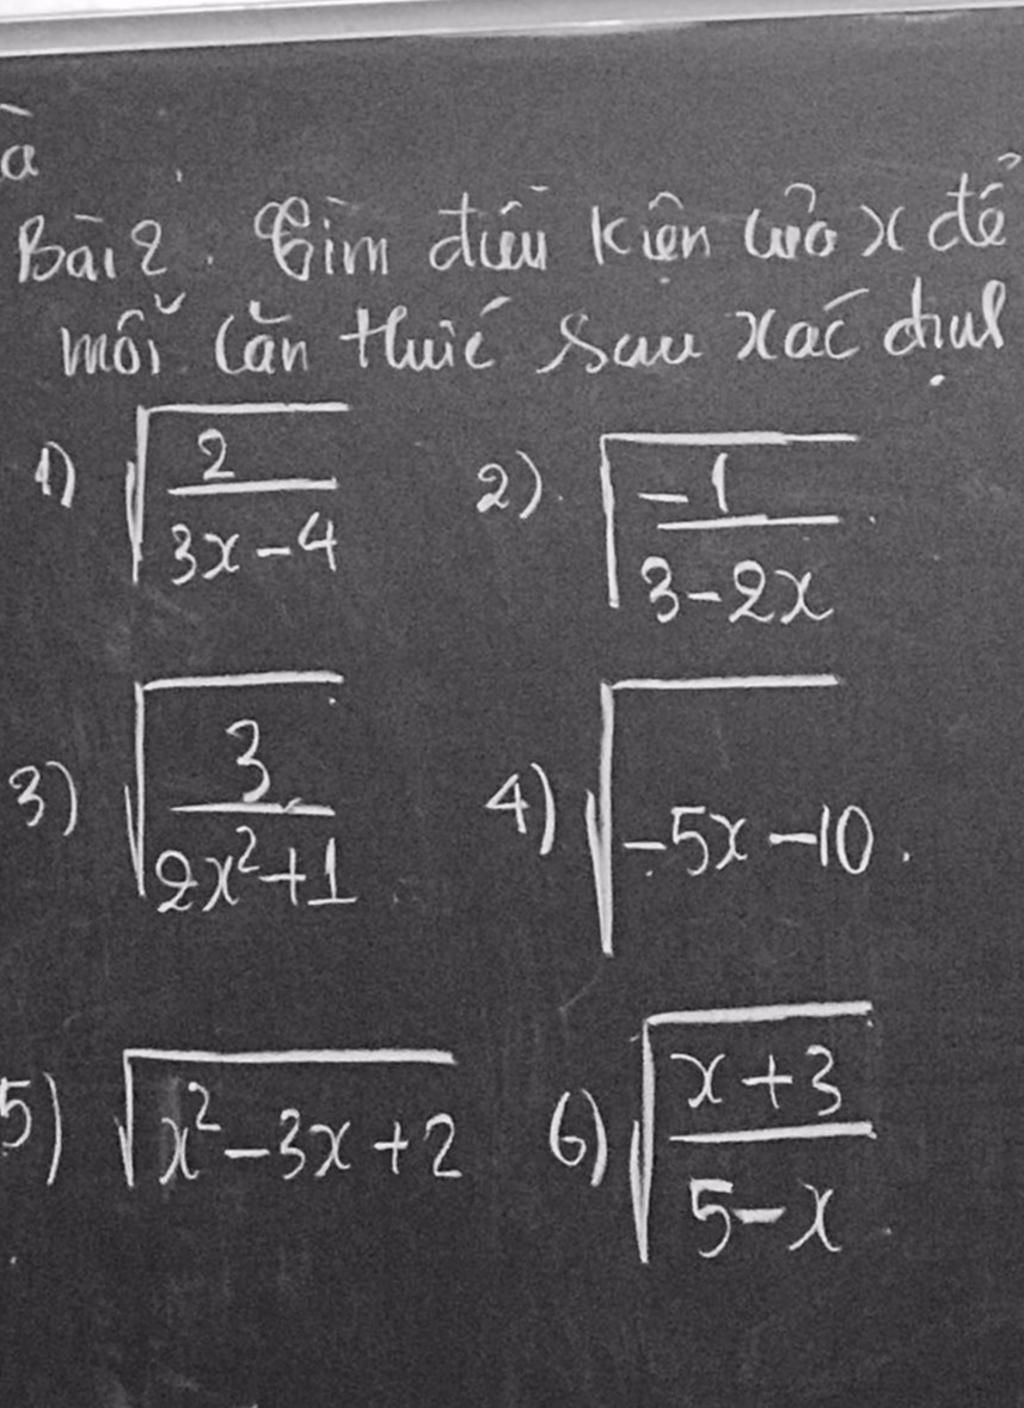 à
Bài 2. Tìm điều kiện của x để
mỗi căn thức sau xác định
1) √(2/(3x-4)) 2) √(-1/(3-2x)).
3) √(3/(2x²+1)) 4) √(-5x-10).
5) √(x²-3x+2) 6) √((x+3)/(5-x))